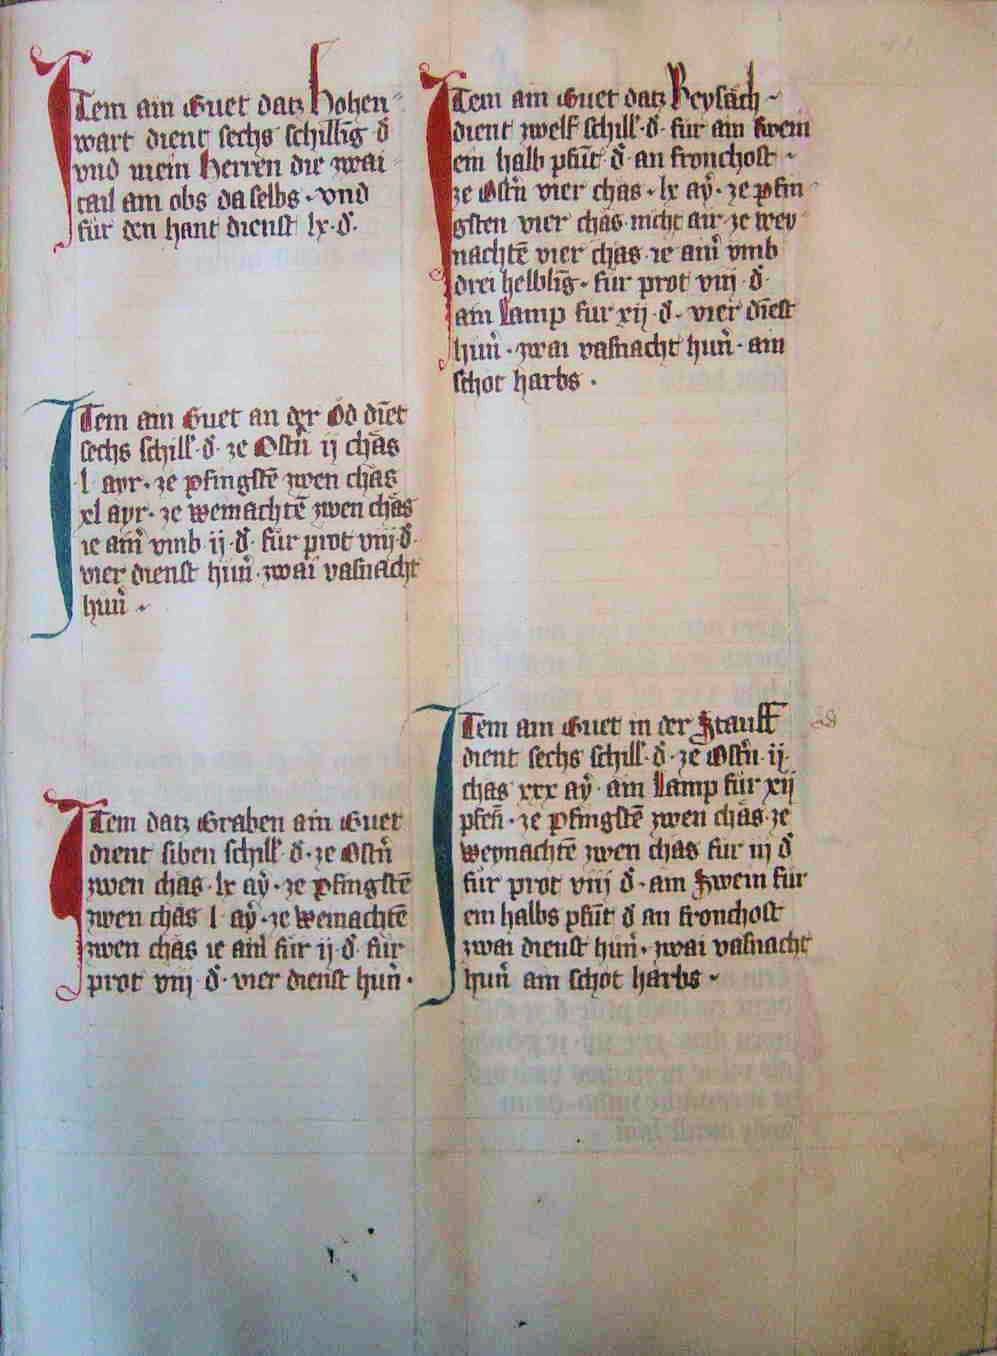 Item ain Guet datz Hohen
wart dient sechs schilling ₰
vnd mein Herren die zwai
tail am obs daselbs · vnd
für den hant dienst lx · ₰ ·
Item ain Guet an der Öd dīet
sechs schill · ₰ · ze Ostn̄ ij chäs
l ayr · ze pfingstē zwen chäs
xl ayr · ze weinachtē zwen chäs
ie ain̄ vmb ij · ₰ · für prot viij ₰ ·
vier dienst hün̄ · zwai vasnacht
hün̄ ·
Item datz Graben ain Guet
dient siben schill · ₰ · ze Ostn̄
zwen chäs · lx aÿ · ze pfingstē
zwen chäs l · aÿ · ze weinachtē
zwen chäs ie ain̄ für ij · ₰ · für
prot viij ₰ · vier dienst hün̄ ·
Item ain Guet datz Reysäch
dient zwelf schill · ₰ · für ain swein
ein halb pfūt ₰ · an fronchost ·
ze Ostn̄ vier chäs · lx aÿ · ze pfin
gsten vier chäs · nicht air · ze wey
nachtē vier chäs · ie ain̄ vmb
drei helblīg · für prot viij · ₰ ·
ain Lamp für xij · ₰ · vier dīest
hün̄ · zwai vasnacht hün̄ · ain
schot harbs ·
Item ain Guet in der Stauff
dient sechs schill · ₰ · ze Ostn̄ · ij ·
chäs xxx aÿ · ain Lamp für xij
pfen̄ · ze pfingstē zwen chäs · ze
weynachtē zwen chäs für iij ₰
für prot viij ₰ · ain Swein für
ein halbs pfūt ₰ an fronchost
zwai dienst hün̄ · zwai vasnacht
hün̄ ain schot harbs ·